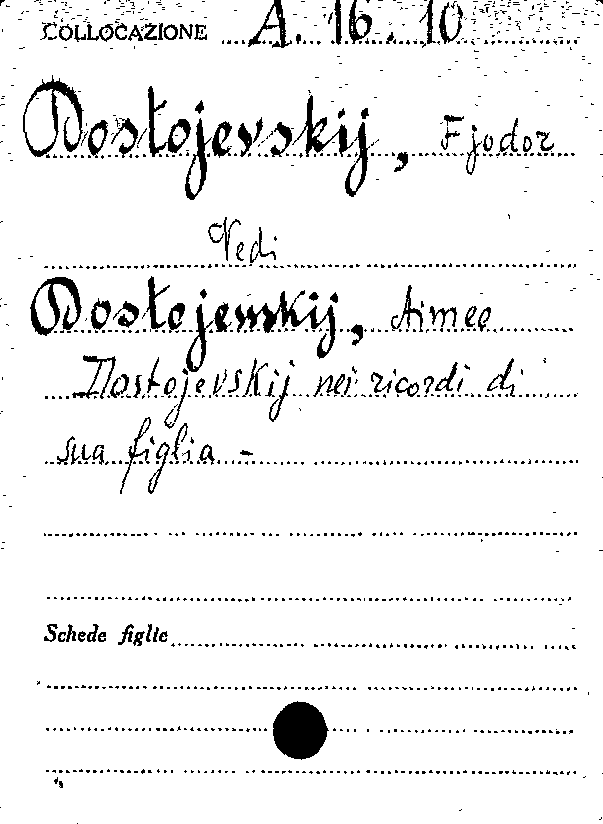 COLLOCAZIONE A. 16. 10
Dostojevskij, Fjodor
Vedi
Dostojevskij, Aimee
Dostojevskij nei ricordi di
sua figlia -
Schede figlie